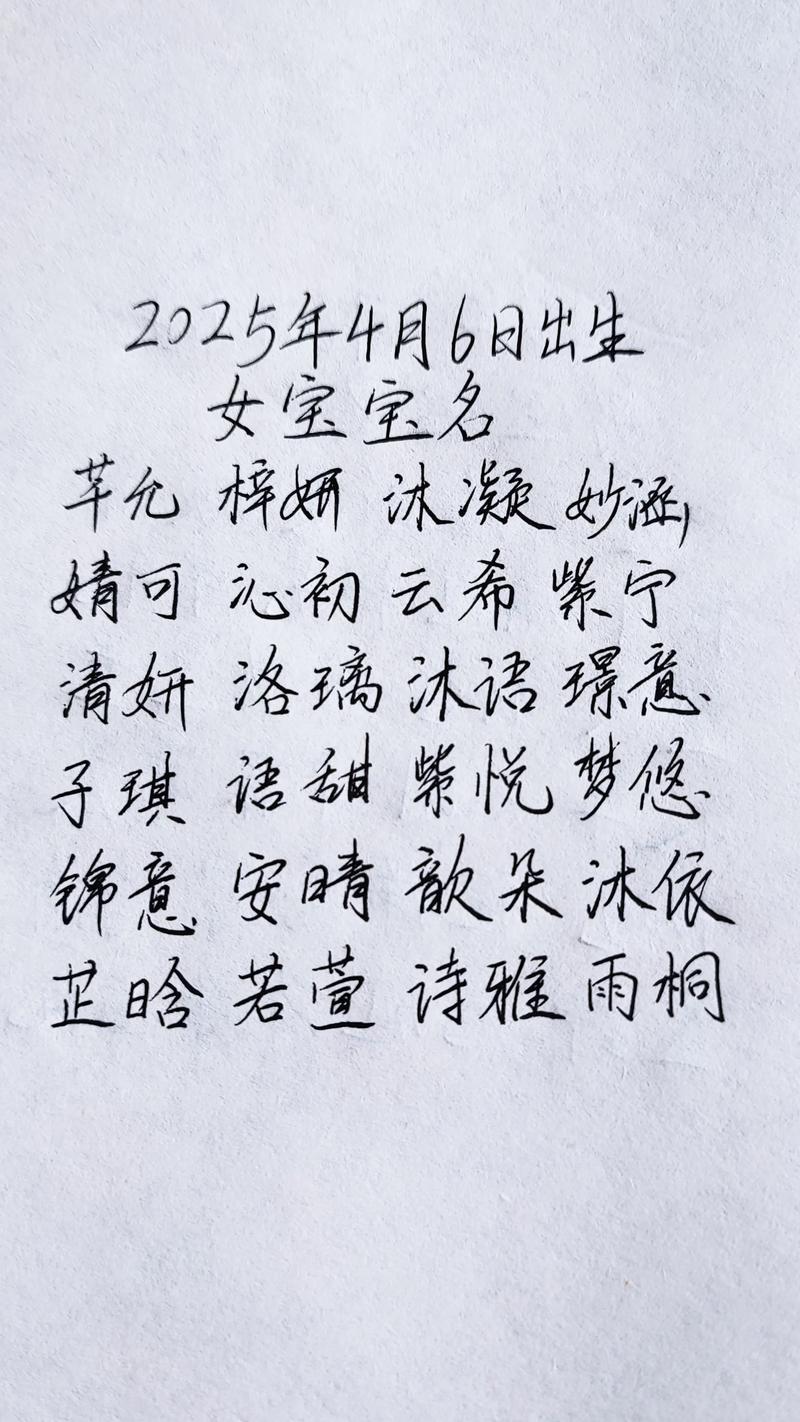 2025年4月6日出生
女宝宝名
芊允 梓妍 沐凝 妙涵
婧可 沁初 云希 紫宁
清妍 洛璃 沐语 璟意
子琪 语甜 紫悦 梦悠
锦意 安晴 歆朵 沐依
芷晗 若萱 诗雅 雨桐